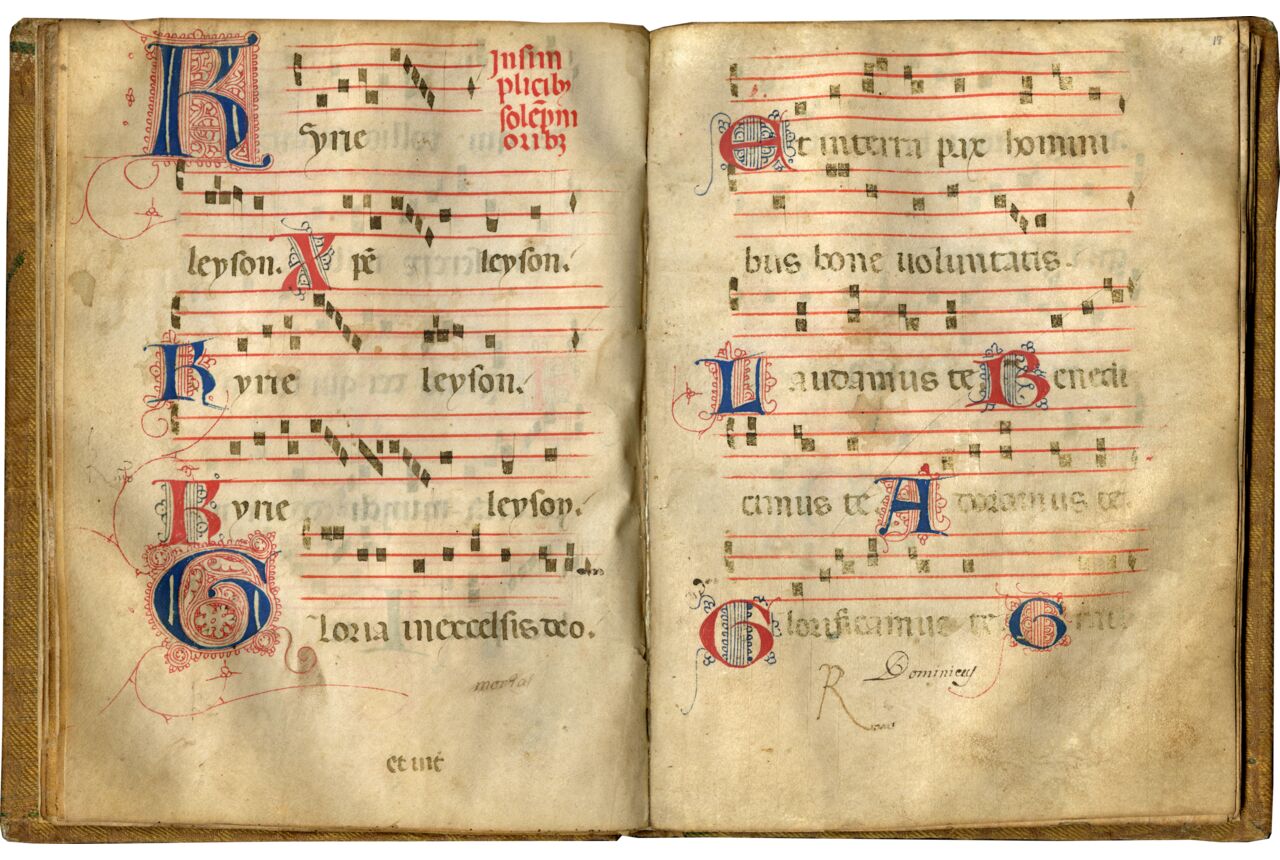 In sim
plicib;
solēpni
orib;
Kyrie
leyson. Xpē leyson.
Kyrie leyson.
Kyrie leyson.
Gloria in excelsis deo.
mortal
et int
Et in terra pax homini
bus bone uoluntatis.
Laudamus te Benedi
cimus te Adoramus te.
Glorificamus te G
Dominicus
R